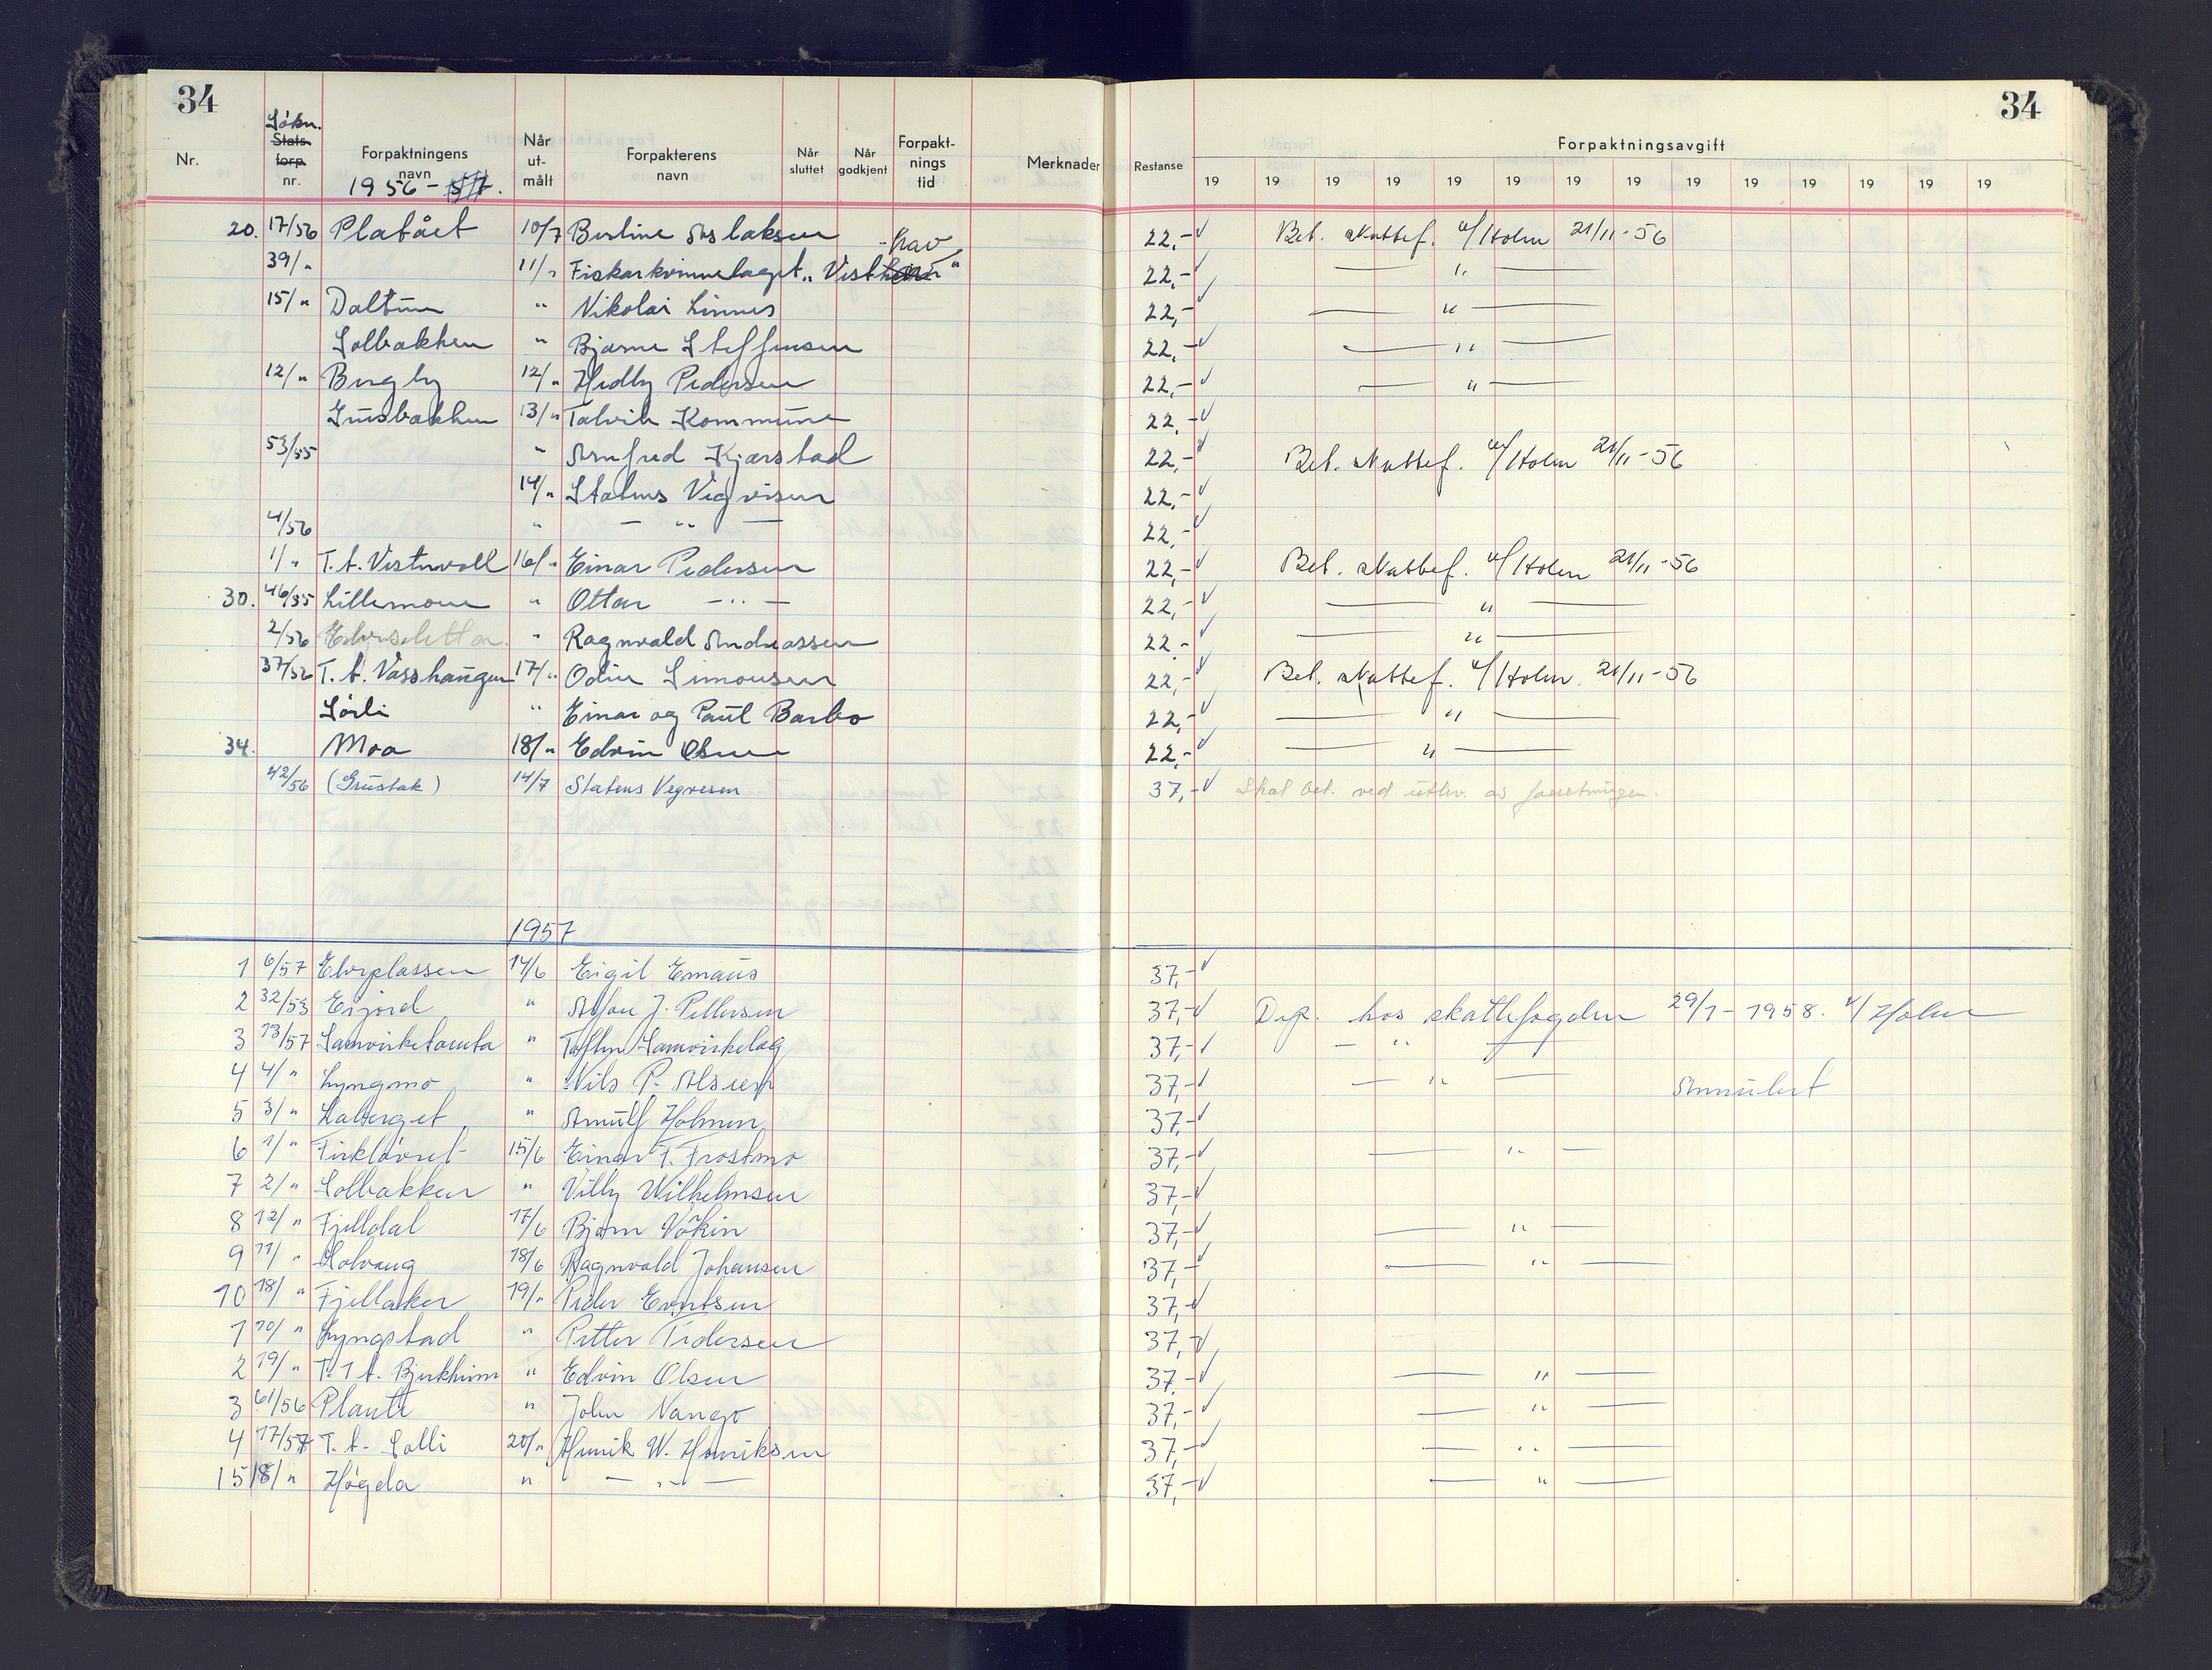 34
34
Nr.
Søkn.
Stats-
forp.
nr.
Forpaktningens
navn
1956 - 57.
Når
ut-
målt
Forpakterens
navn
Når
sluttet
Når
godkjent
Forpakt-
nings
tid
Merknader
Restanse
Forpaktningsavgift
19 19 19 19 19 19 19 19 19 19 19 19 19 19
20. 17/56 Platået 10/7 Berline Aslaksen 22,- Bet. skattef. v/Holm 21/11-56
39/" 11/" Fiskarkvinnelaget "Vesthav" 22,- — " —
15/" Daltun " Nikolai Linnes 22,- — " —
Solbakken " Bjarne Steffensen 22,- — " —
12/" Bergly 12/" Hedly Pedersen 22,- — " —
Grusbakken 13/" Talvik Kommune 22,-
53/55 " Arnfred Kjærstad 22,- Bet. skattef. v/Holm 21/11-56
14/" Statens Vegvesen 22,-
4/56 " — " — 22,-
1/" T.t. Vestervoll 16/" Einar Pedersen 22,- Bet. skattef. v/Holm 21/11-56
30. 46/55 Lillemoen " Ottar — " — 22,- — " —
2/56 Elvesletta " Ragnvald Andreassen 22,- — " —
37/56 T.t. Vasshaugen 17/" Odin Simonsen 22,- Bet. skattef. v/Holm. 21/11-56
Sørli " Einar og Paul Barbo 22,- — " —
34. Moa 18/" Edvin Olsen 22,- — " —
42/56 (Grustak) 14/7 Statens Vegvesen 37,- Skal bet. ved utlev. av forretningen.
1957
1 6/57 Elveplassen 14/6 Eigil Emaus 37,-
2 32/53 Eijord " Alfon J. Pettersen 37,- Dep. hos skattefogden 29/1-1958. v/Holm
3 13/57 Samvirketomta " Samvirkelag 37,- — " —
4 4/" Lyngmo " Nils P. 37,- — " — Annulert
5 3/" " Arnulf Holmen 37,-
6 1/" Firkløvret 15/6 Einar F. Frostmo 37,- — " —
7 2/" Solbakken " Villy Wilhelmsen 37,-
8 12/" Fjelldal 17/6 Bjørn Våkin 37,- — " —
9 11/" Solvang 18/6 Ragnvald Johansen 37,- — " —
10 18/" Fjellaker 19/" Peder Evertsen 37,-
1 10/" Lyngstad " Petter Pedersen 37,-
2 19/" T.t. Bjerkheim " Edvin Olsen 37,- — " —
3 61/56 " John Nango 37,- — " —
4 17/57 T.t. Solli 20/" Henrik W. Henriksen 37,- — " —
15 18/" Høgda " — " — 37,- — " —